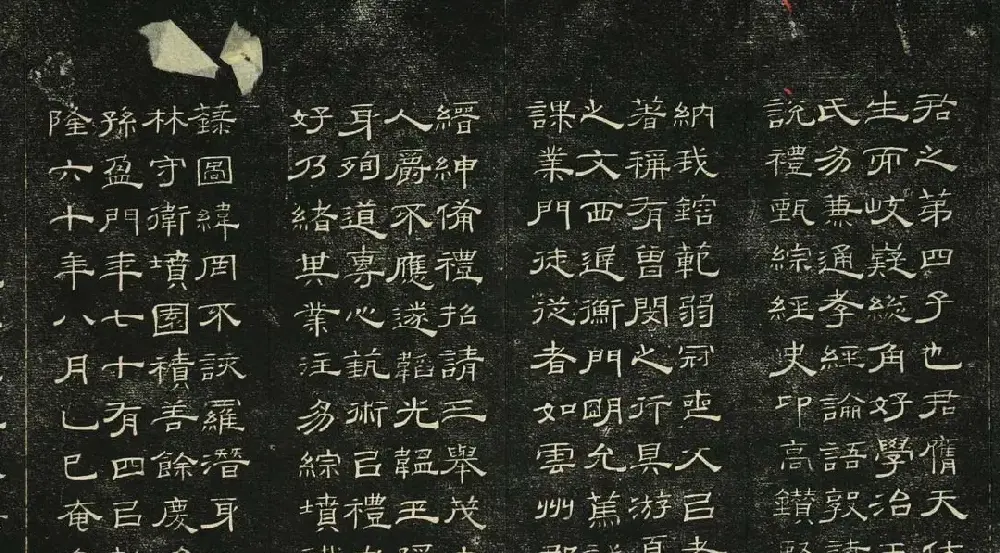 君之第四子也君膺天
生而岐嶷總角好學治
氏易兼通孝經論語敦
說禮甄綜經史卬高鑽
納我鎔範弱冠喪父㠯
著稱有曾閔之行具游
之文西遲衡門明允篤
課業門徒從者如雲州
縉紳備禮招請三舉茂
人爵不應遂韜光韞玉
身殉道專心執術㠯禮
好乃緒其業注易綜墳
籙圖緯罔不談羅潛身
林守衛墳園積善餘慶
孫盈門年七十有四㠯
隆六十年八月己巳奄